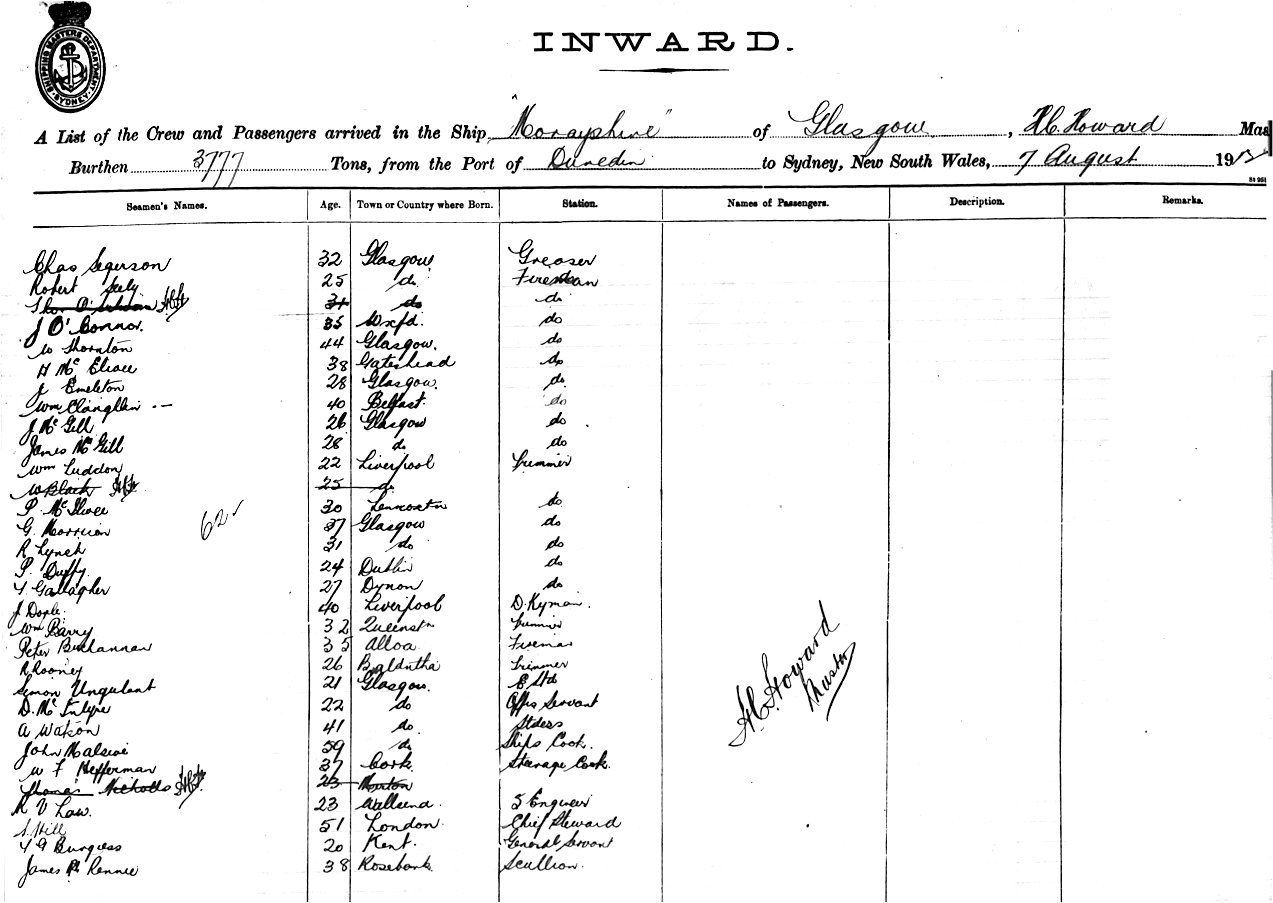 SHIPPING MASTERS DEPARTMENT SYDNEY
INWARD.
A List of the Crew and Passengers arrived in the Ship "Morayshire" of Glasgow, H.C. Howard Mas
Burthen 3777 Tons, from the Port of Dunedin to Sydney, New South Wales, 7 August 191
Seamen's Names. Age. Town or Country where Born. Station. Names of Passengers. Description. Remarks.
Chas Segerson 32 Glasgow Greaser
Robert Seely 25 do Fireman
31 do do
J O'Connor. 35 Wxfd. do
W Thornton 44 Glasgow. do
H Mc 38 Gateshead do
J Emelton 28 Glasgow. do
Wm 40 Belfast. do
J McGill 26 Glasgow do
James McGill 28 do do
Wm Luddon 22 Liverpool Trimmer
W Black 25 do
P. Mc 30 do
G. Morrison 37 Glasgow do
62
R Lynch 31 do do
P. Duffy 24 Dublin do
Gallagher 27 do
J Doyle. 40 Liverpool D. Kyman.
Wm Barry 32 Queenstn Trimmer
Peter Buchannan 35 Alloa Fireman
R Rooney 26 Trimmer
Simon Ungulant 21 Glasgow.
D. McIntyre 22 do Offrs Servant
A Watson 41 do Stders
John 59 do Ships Cook.
W F Hefferman 37 Cork Steerage Cook.
Thomas Nicholls 23
R V Law. 23 Wallsend 5 Engineer
S. Hill 51 London Chief Steward
Burgess 20 Kent. General Servant
James Rennie 38 Rosebank Scullion.
H.C. Howard
Master